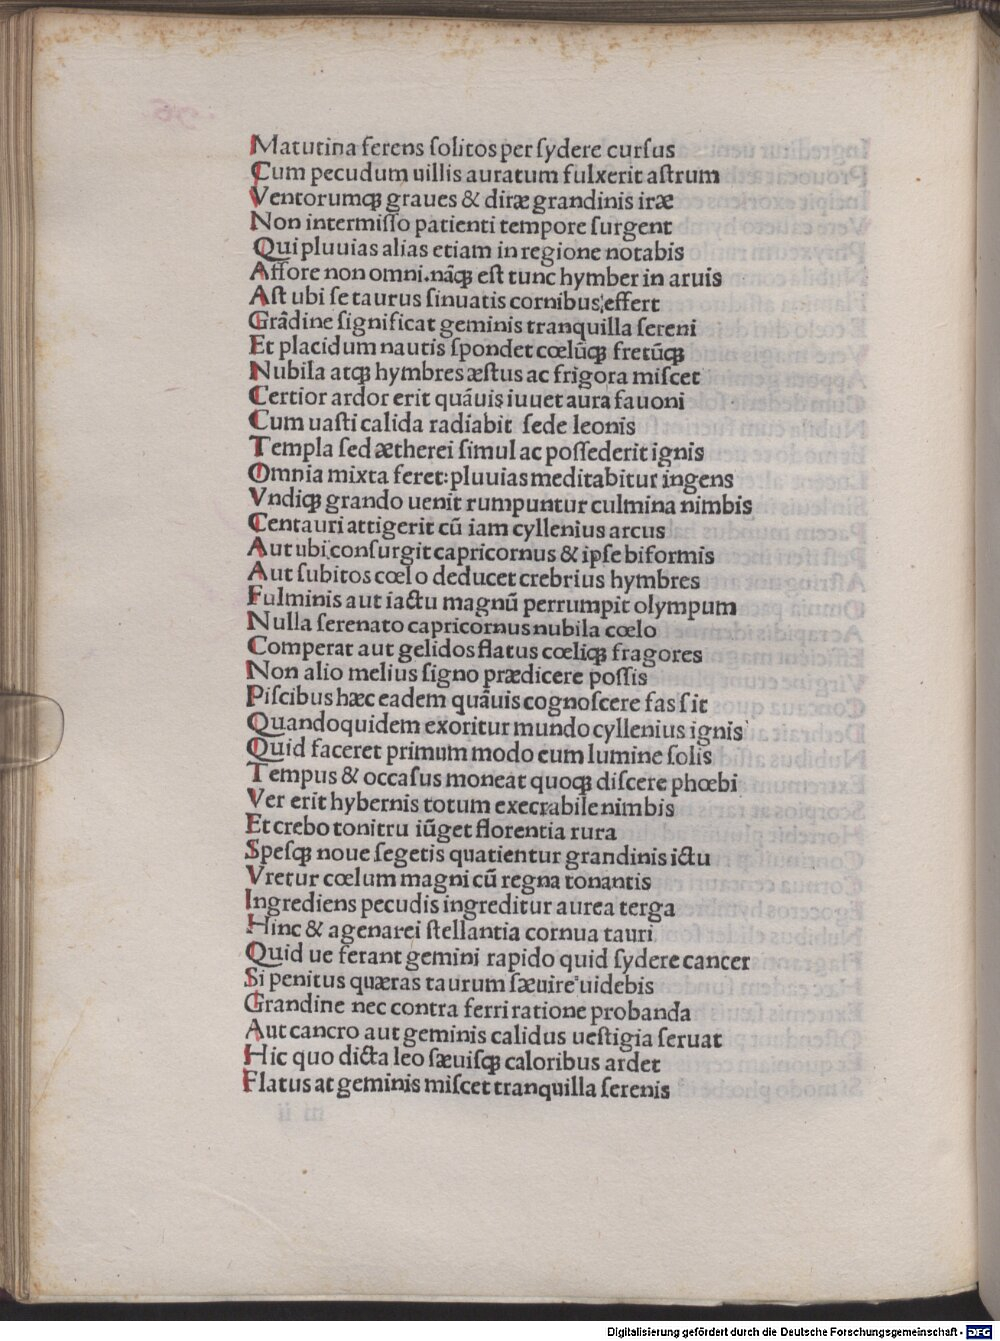 Matutina ferens ſolitos per ſydere curſus
Cum pecudum uillis auratum fulxerit aſtrum
Ventorumqꝫ graues & diræ grandinis iræ
Non intermiſſo patienti tempore ſurgent
Qui pluuias alias etiam in regione notabis
Affore non omni.nãqꝫ eſt tunc hymber in aruis
Aſt ubi ſe taurus ſinuatis cornibus effert
Grãdine ſignificat geminis tranquilla ſereni
Et placidum nautis ſpondet cœlũqꝫ fretũqꝫ
Nubila atqꝫ hymbres æſtus ac frigora miſcet
Certior ardor erit quãuis iuuet aura fauoni
Cum uaſti calida radiabit ſede leonis
Templa ſed ætherei ſimul ac poſſederit ignis
Omnia mixta feret:pluuias meditabitur ingens
Vndiqꝫ grando uenit rumpuntur culmina nimbis
Centauri attigerit cũ iam cyllenius arcus
Aut ubi conſurgit capricornus & ipſe biformis
Aut ſubitos cœlo deducet crebrius hymbres
Fulminis aut iactu magnũ perrumpit olympum
Nulla ſerenato capricornus nubila cœlo
Comperat aut gelidos flatus cœliqꝫ fragores
Non alio melius ſigno prædicere poſſis
Piſcibus hæc eadem quãuis cognoſcere fas ſit
Quandoquidem exoritur mundo cyllenius ignis
Quid faceret primum modo eum lumine ſolis
Tempus & occaſus moneat quoqꝫ diſcere phœbi
Ver erit hybernis totum execrabile nimbis
Et crebo tonitru iũget florentia rura
Speſqꝫ noue ſegetis quatientur grandinis ictu
Vretur cœlum magni cũ regna tonantis
Ingrediens pecudis ingreditur aurea terga
Hinc & agenarei ſtellantia cornua tauri
Quid ue ferant gemini rapido quid ſydere cancer
Si penitus quæras taurum ſæuire uidebis
Grandine nec contra ferri ratione probanda
Aut cancro aut geminis calidus ueſtigia ſeruat
Hic quo dicta leo ſæuiſqꝫ caloribus ardet
Flatus at geminis miſcet tranquilla ſerenis
Digitalisierung gefördert durch die Deutsche Forschungsgemeinschaft - DFG